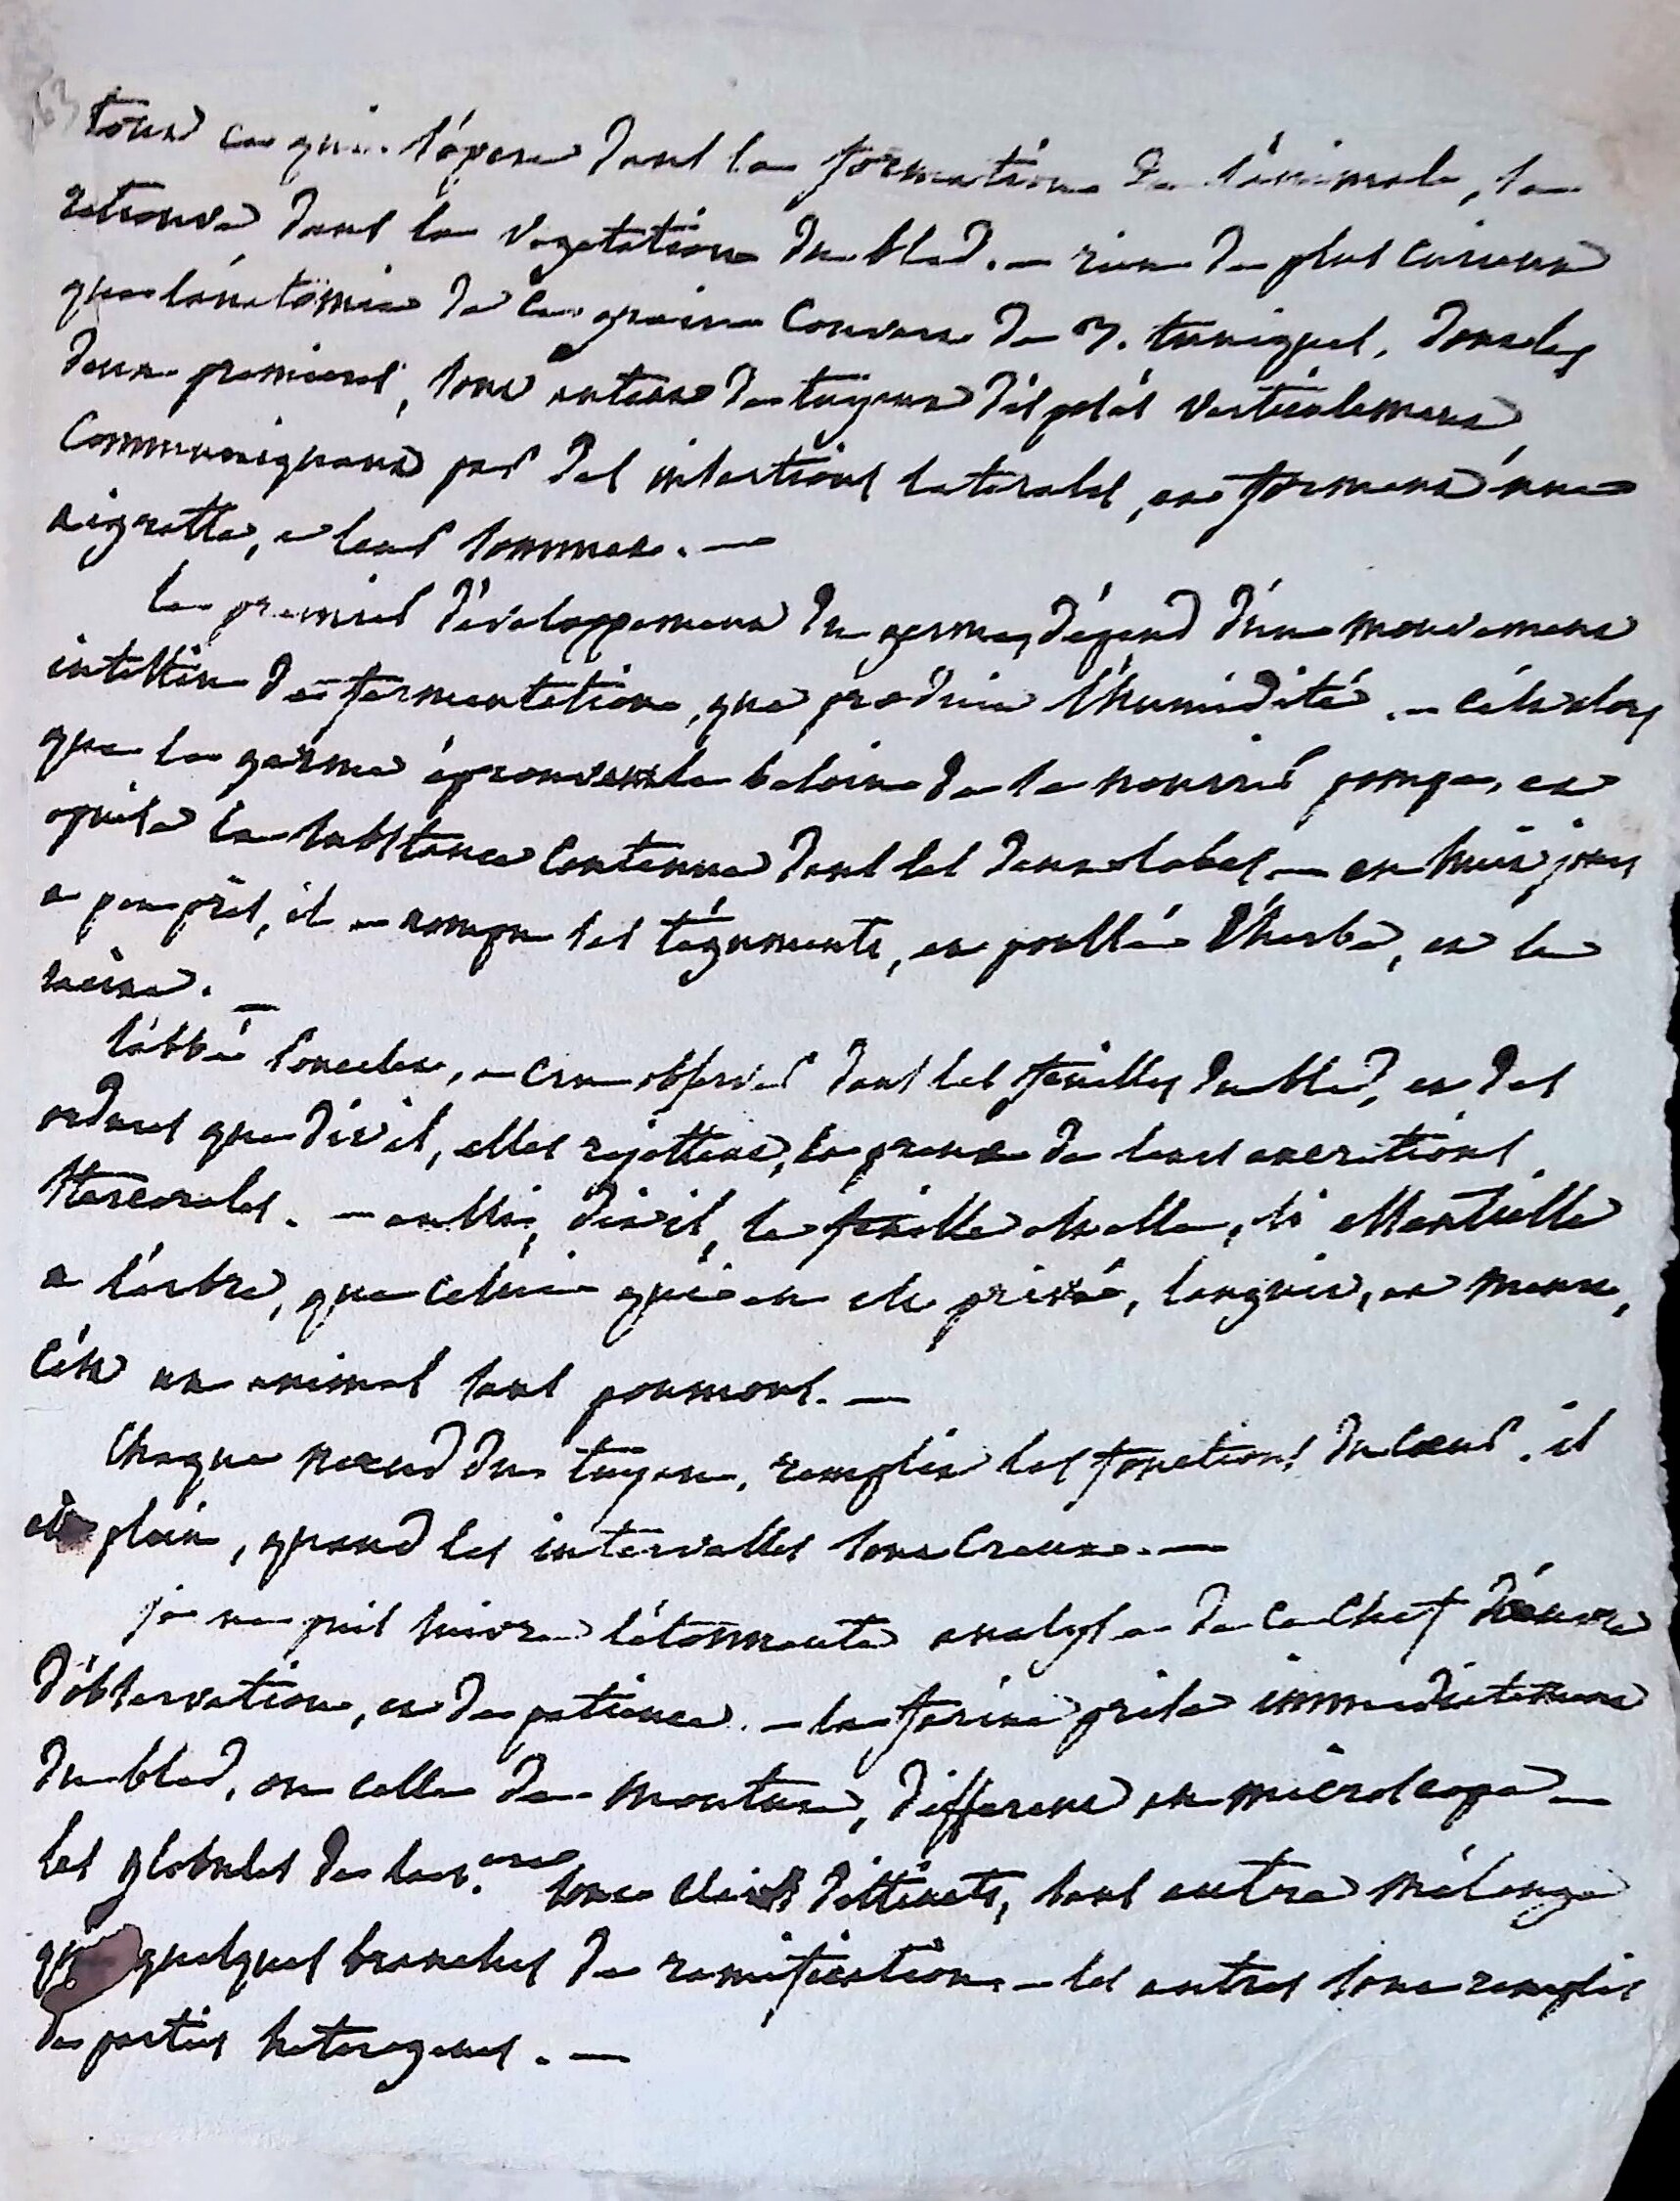 tout ce qui s'opere dans la formation de l'animale, se
retrouve dans la vegetation du bled. — rien de plus curieux
que l'anatomie de ce grain couvert de 3. tuniques, dont les
deux premieres, sont autant de tuyaux disposés verticalement
communiquant par des insertions laterales, et formant une
aigrette, a leur sommet. —
le premier développement du germe, dépend d'un mouvement
intestin de fermentation, que produit l'humidité. — c'est alors
que le germe éprouvant le besoin de se nourrir pompe, et
épuise la substance contenue dans les deux lobes — en huit jours
a peu prés, il a rompu ses téguments, et poussé l'herbe, et la
racine. —
l'abbé poncelet, a cru observer dans les feuilles du bled, et des
ordures que dit il, elles rejettent, la preuve de leurs excretions
stercorales. — aussi, dit il, la feuille est elle, si essentielle
a l'arbre, que celui qui en est privé, languit, et meurt,
c'est un animal sans poumons. —
Chaque noeud du tuyau, remplit les fonctions du coeur. il
est plein, quand les intervalles sont creux. —
je ne puis suivre l'étonnante analyse de ce chef d'oeuvre
d'observation, et de patience. — la farine prise immediatement
du bled, ou celle de mouture, different au microscope —
les globules de la 1.ere sont clairs distincts, sans autre mélange
que quelques branches de ramification. — les autres sont remplis
de parties heterogenes. —